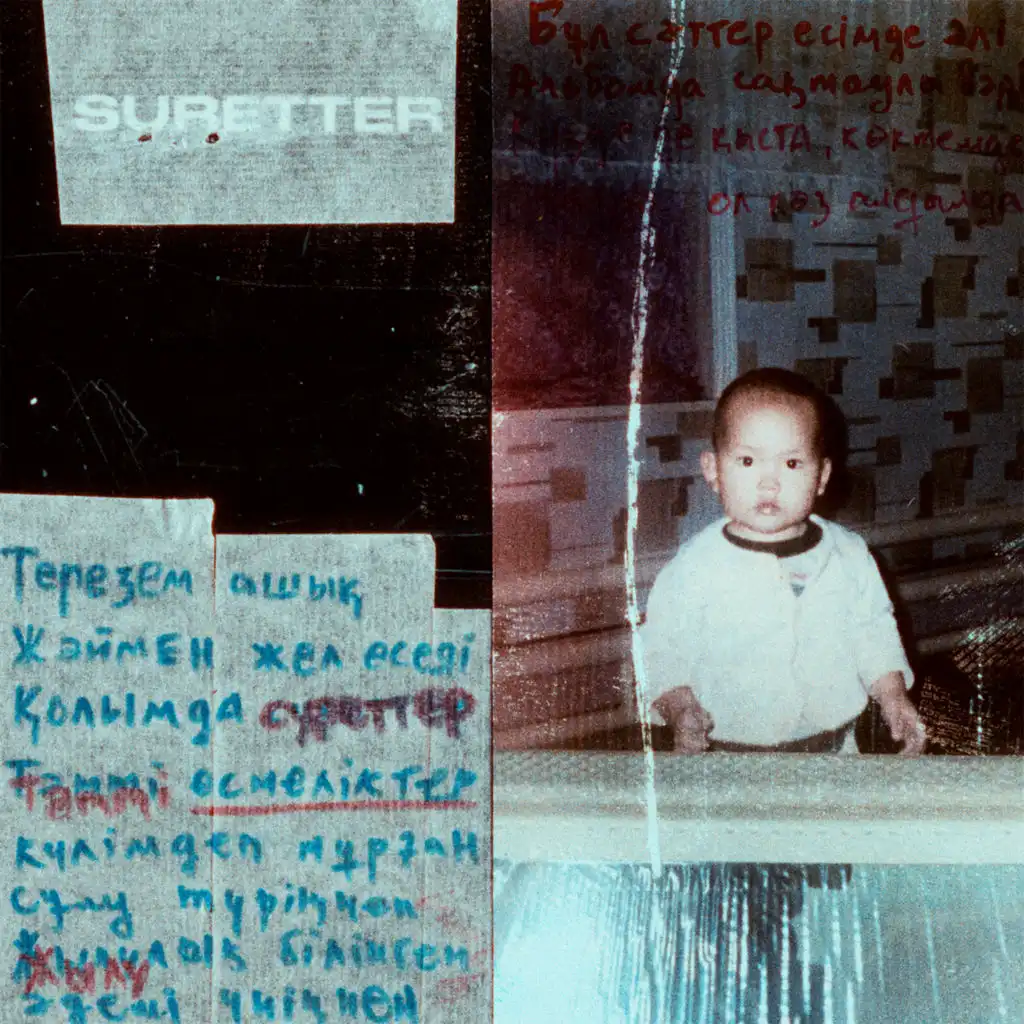 SURETTER
Бұл сәттер есімде әлі
Альбомда сақтаулы бәрі
не қыста, көктемде
ол көз алдымда
Терезем ашық
Жәймен жел еседі
Қолымда суреттер
Тәтті өсмеліктер
Тәтті
күлімдеп тұрған
сұлу түріңнен
Жылулық білінген
Жылу
әдемі үніңнен